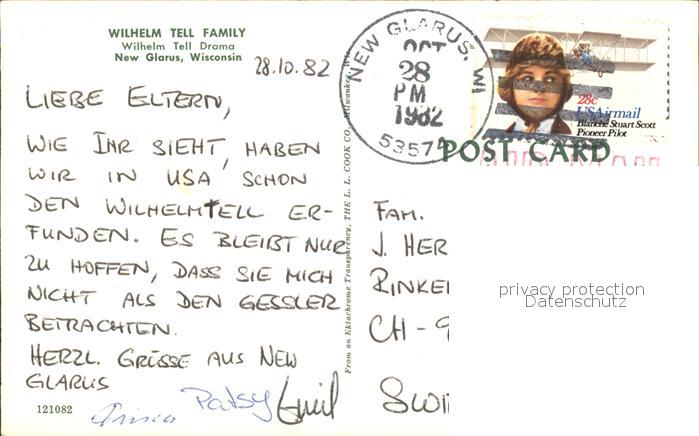 WILHELM TELL FAMILY
Wilhelm Tell Drama
New Glarus, Wisconsin
28.10.82
LIEBE ELTERN,
WIE IHR SIEHT, HABEN
WIR IN USA SCHON
DEN WILHELMTELL ER-
FUNDEN. ES BLEIBT NUR
ZU HOFFEN, DASS SIE MICH
NICHT ALS DEN GESSLER
BETRACHTEN.
HERZL. GRÜSSE AUS NEW
GLARUS
Patsy Emil
121082
From an Ektachrome Transparency, THE L. L. COOK CO., Milwaukee, Wis.
NEW GLARUS, WI
OCT
28
PM
1982
53574
28c
USAirmail
Blanche Stuart Scott
Pioneer Pilot
POST CARD
FAM.
J. HER
RINKE
CH - 9
SWI
privacy protection
Datenschutz